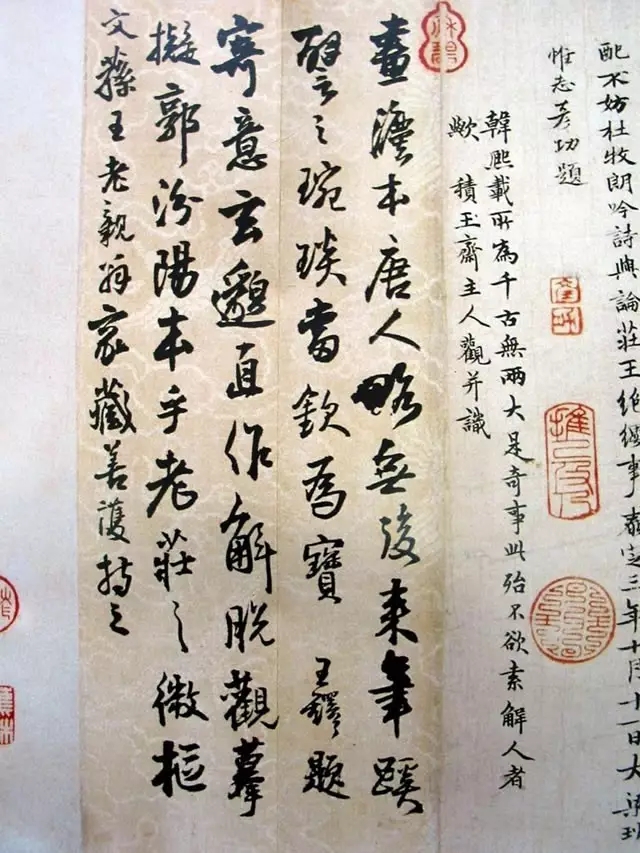 配不妨杜牧朗吟詩與論莊王絕纓事泰定三年十月十一日大梁班
惟志彥功題
韓熙載所為千古無兩大是奇事此殆不欲索解人者
歟 積玉齋主人觀并識
畫灋本唐人略無後來筆蹊
譬之琬琰當欽為寶 王鐸題
寄意玄邈直作解脫觀摹
擬郭汾陽本乎老莊之微樞
文蓀王老親翁家藏善護持之